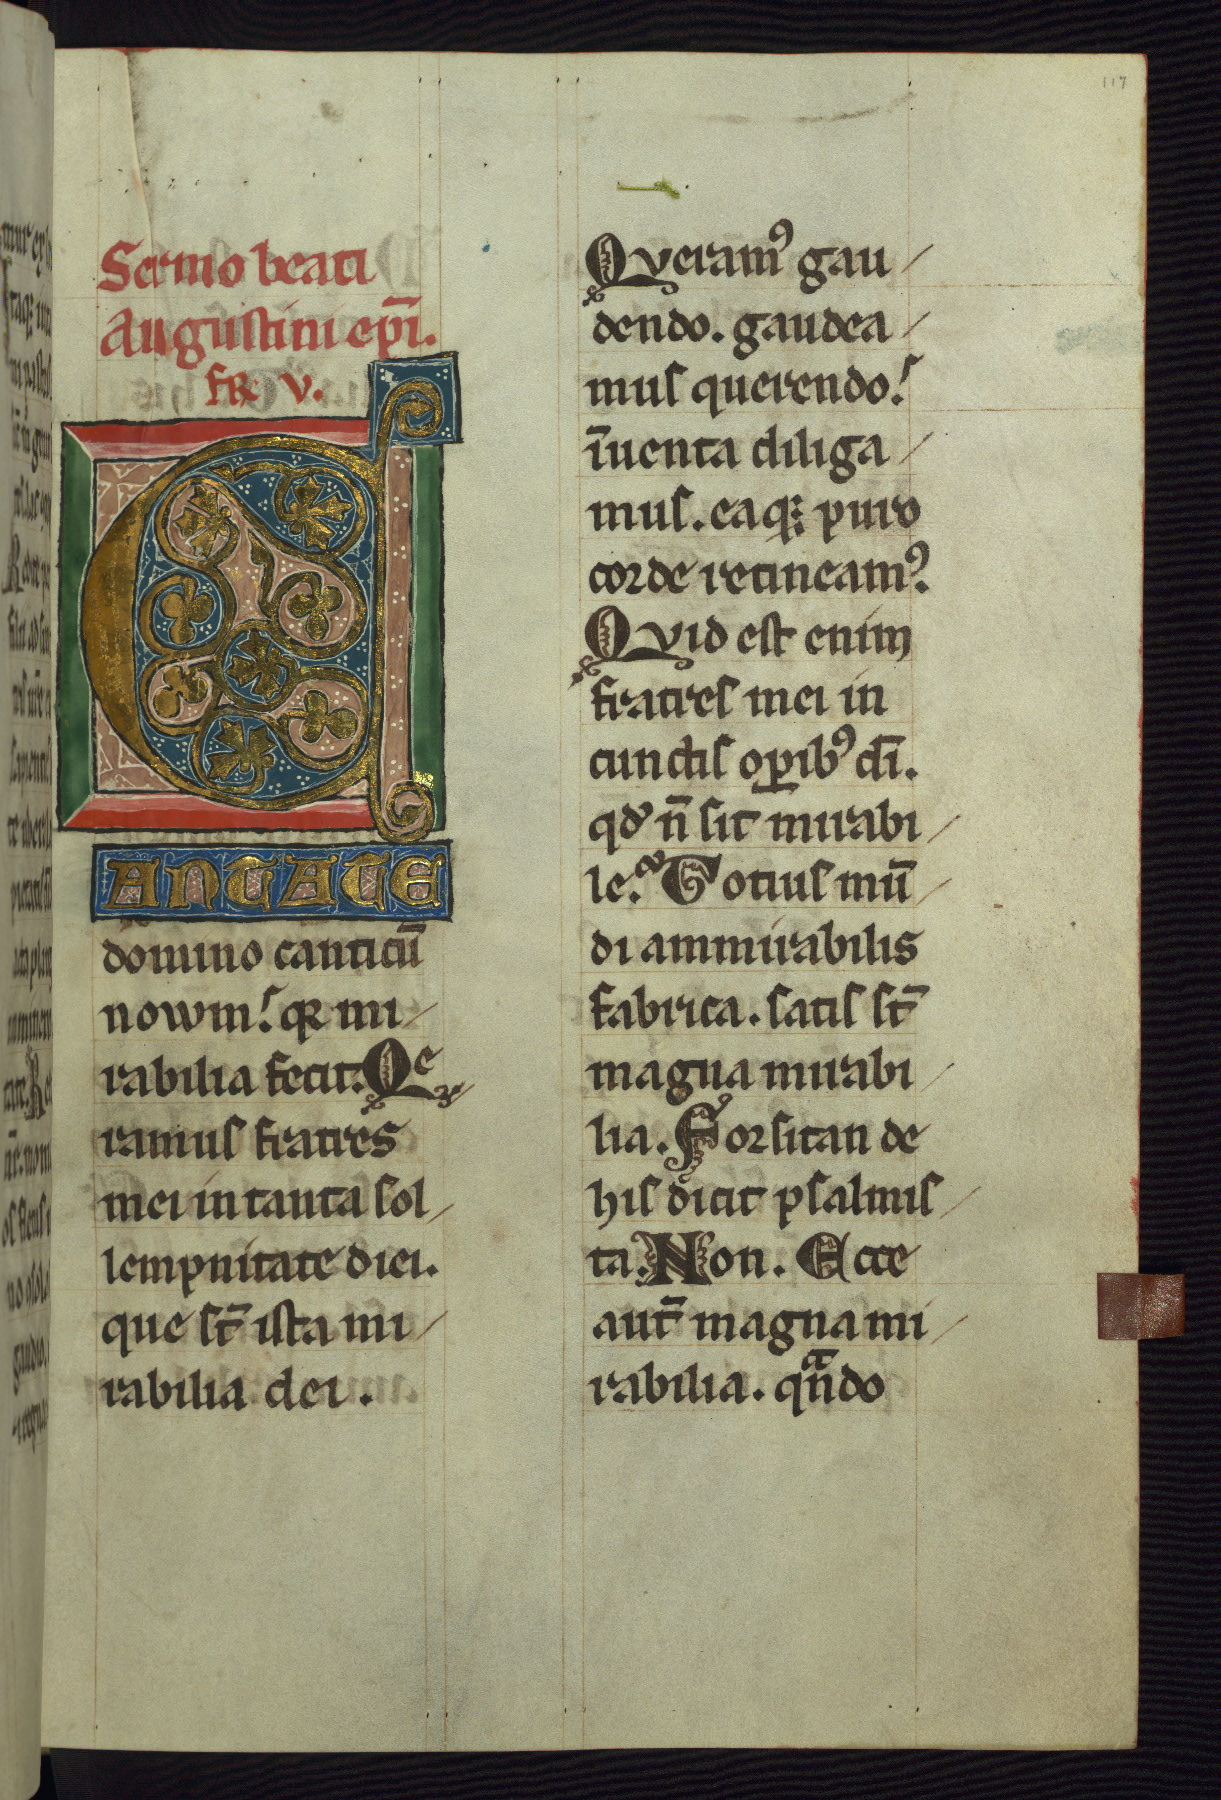 117
Sermo beati
Augustini ep̄i.
fR v.
CANTATE
domino canticū
nowm! qR mi
rabilia fecit. Qe
ramus fratres
mei in tanta sol
lempnitate diei.
que st̄ ista mi
rabilia dei.
Queramꝰ gau
dendo. gaudea
mus querendo!
īuenta diliga
mus. eaq; puro
corde retineamꝰ.
Quid est enim
fratres mei in
cunctis oꝑibꝰ dī.
qđ n̄ sit mirabi
le. Totius mū
di ammirabilis
fabrica. satis st̄
magna mirabi
lia. Forsitan de
his dicit psalmis
ta. Non. Ecce
aut̄ magna mi
rabilia. qᵃndo